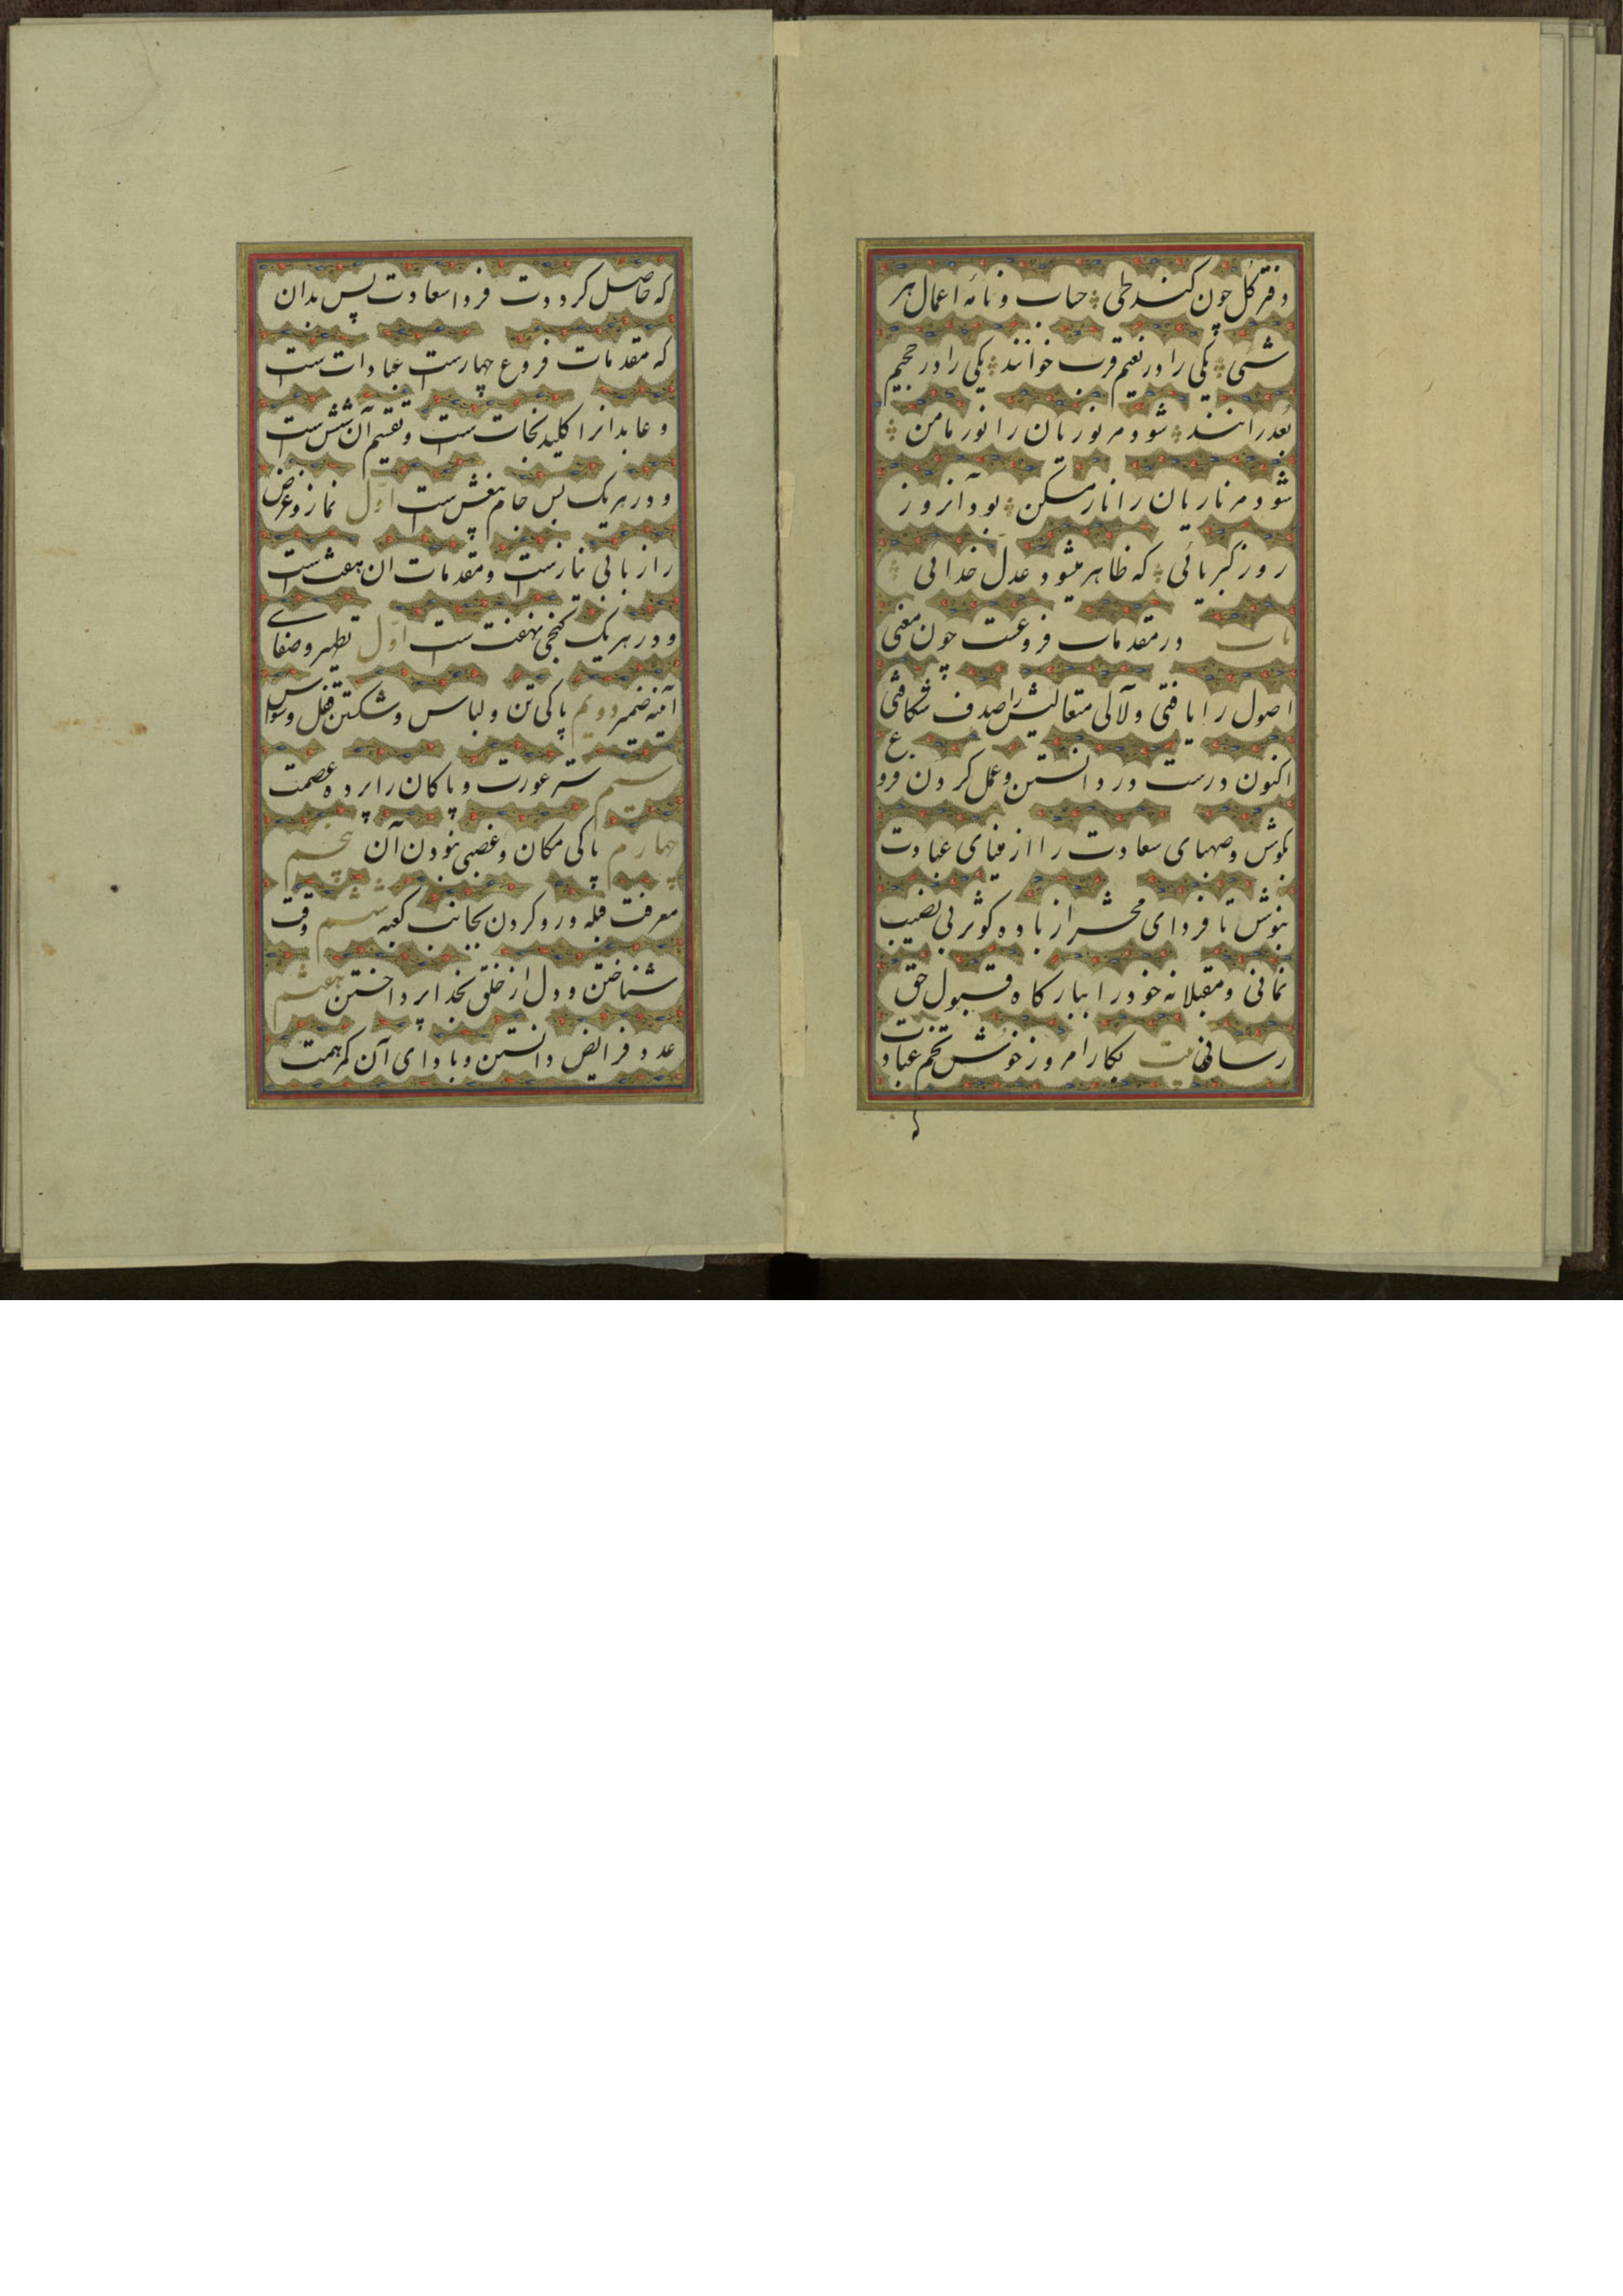 دفتر کل چون کنند طی حساب و نامه اعمال هر
شئی یکی را در نعیم قرب خوانند یکی را در جحیم
بعد رانند شود مر نوریان را نور مامن
شود مر ناریان را نار مسکن بود آنروز
روز کبریائی که ظاهر میشود عدل خدائی
باب در مقدمات فروعست چون معنی
اصول را یافتی و لآلی متعالیش را صدف شکافتی
اکنون درست در دانستن و عمل کردن فروع
بکوش و صهبای سعادت را از مینای عبادت
بنوش تا فردای محشر از باده کوثر بی نصیب
نمانی و مقبلانه خود را ببارگاه قبول حق
رسانی بیت بکار امروز خوش تخم عبادت
که
که حاصل کرددت فردا سعادت پس بدان
که مقدمات فروع چهارست عبادات ست
و عابدانرا کلید نجات ست و تقسیم آن شش ست
و در هر یک بس جام بیغش ست اول نماز و عرض
راز با بی نیازست و مقدمات آن هفت ست
و در هر یک گنجی نهفت ست اول تطهیر و صفای
آئینه ضمیر دویم پاکی تن و لباس و شکستن قفل وسواس
سیم ستر عورت و پاکان را پرده عصمت
چهارم پاکی مکان و غصبی نبودن آن پنجم
معرفت قبله و رو کردن بجانب کعبه ششم وقت
شناختن و دل از خلق بخدا پرداختن هفتم
عدد فرایض دانستن و بادای آن کمر همت